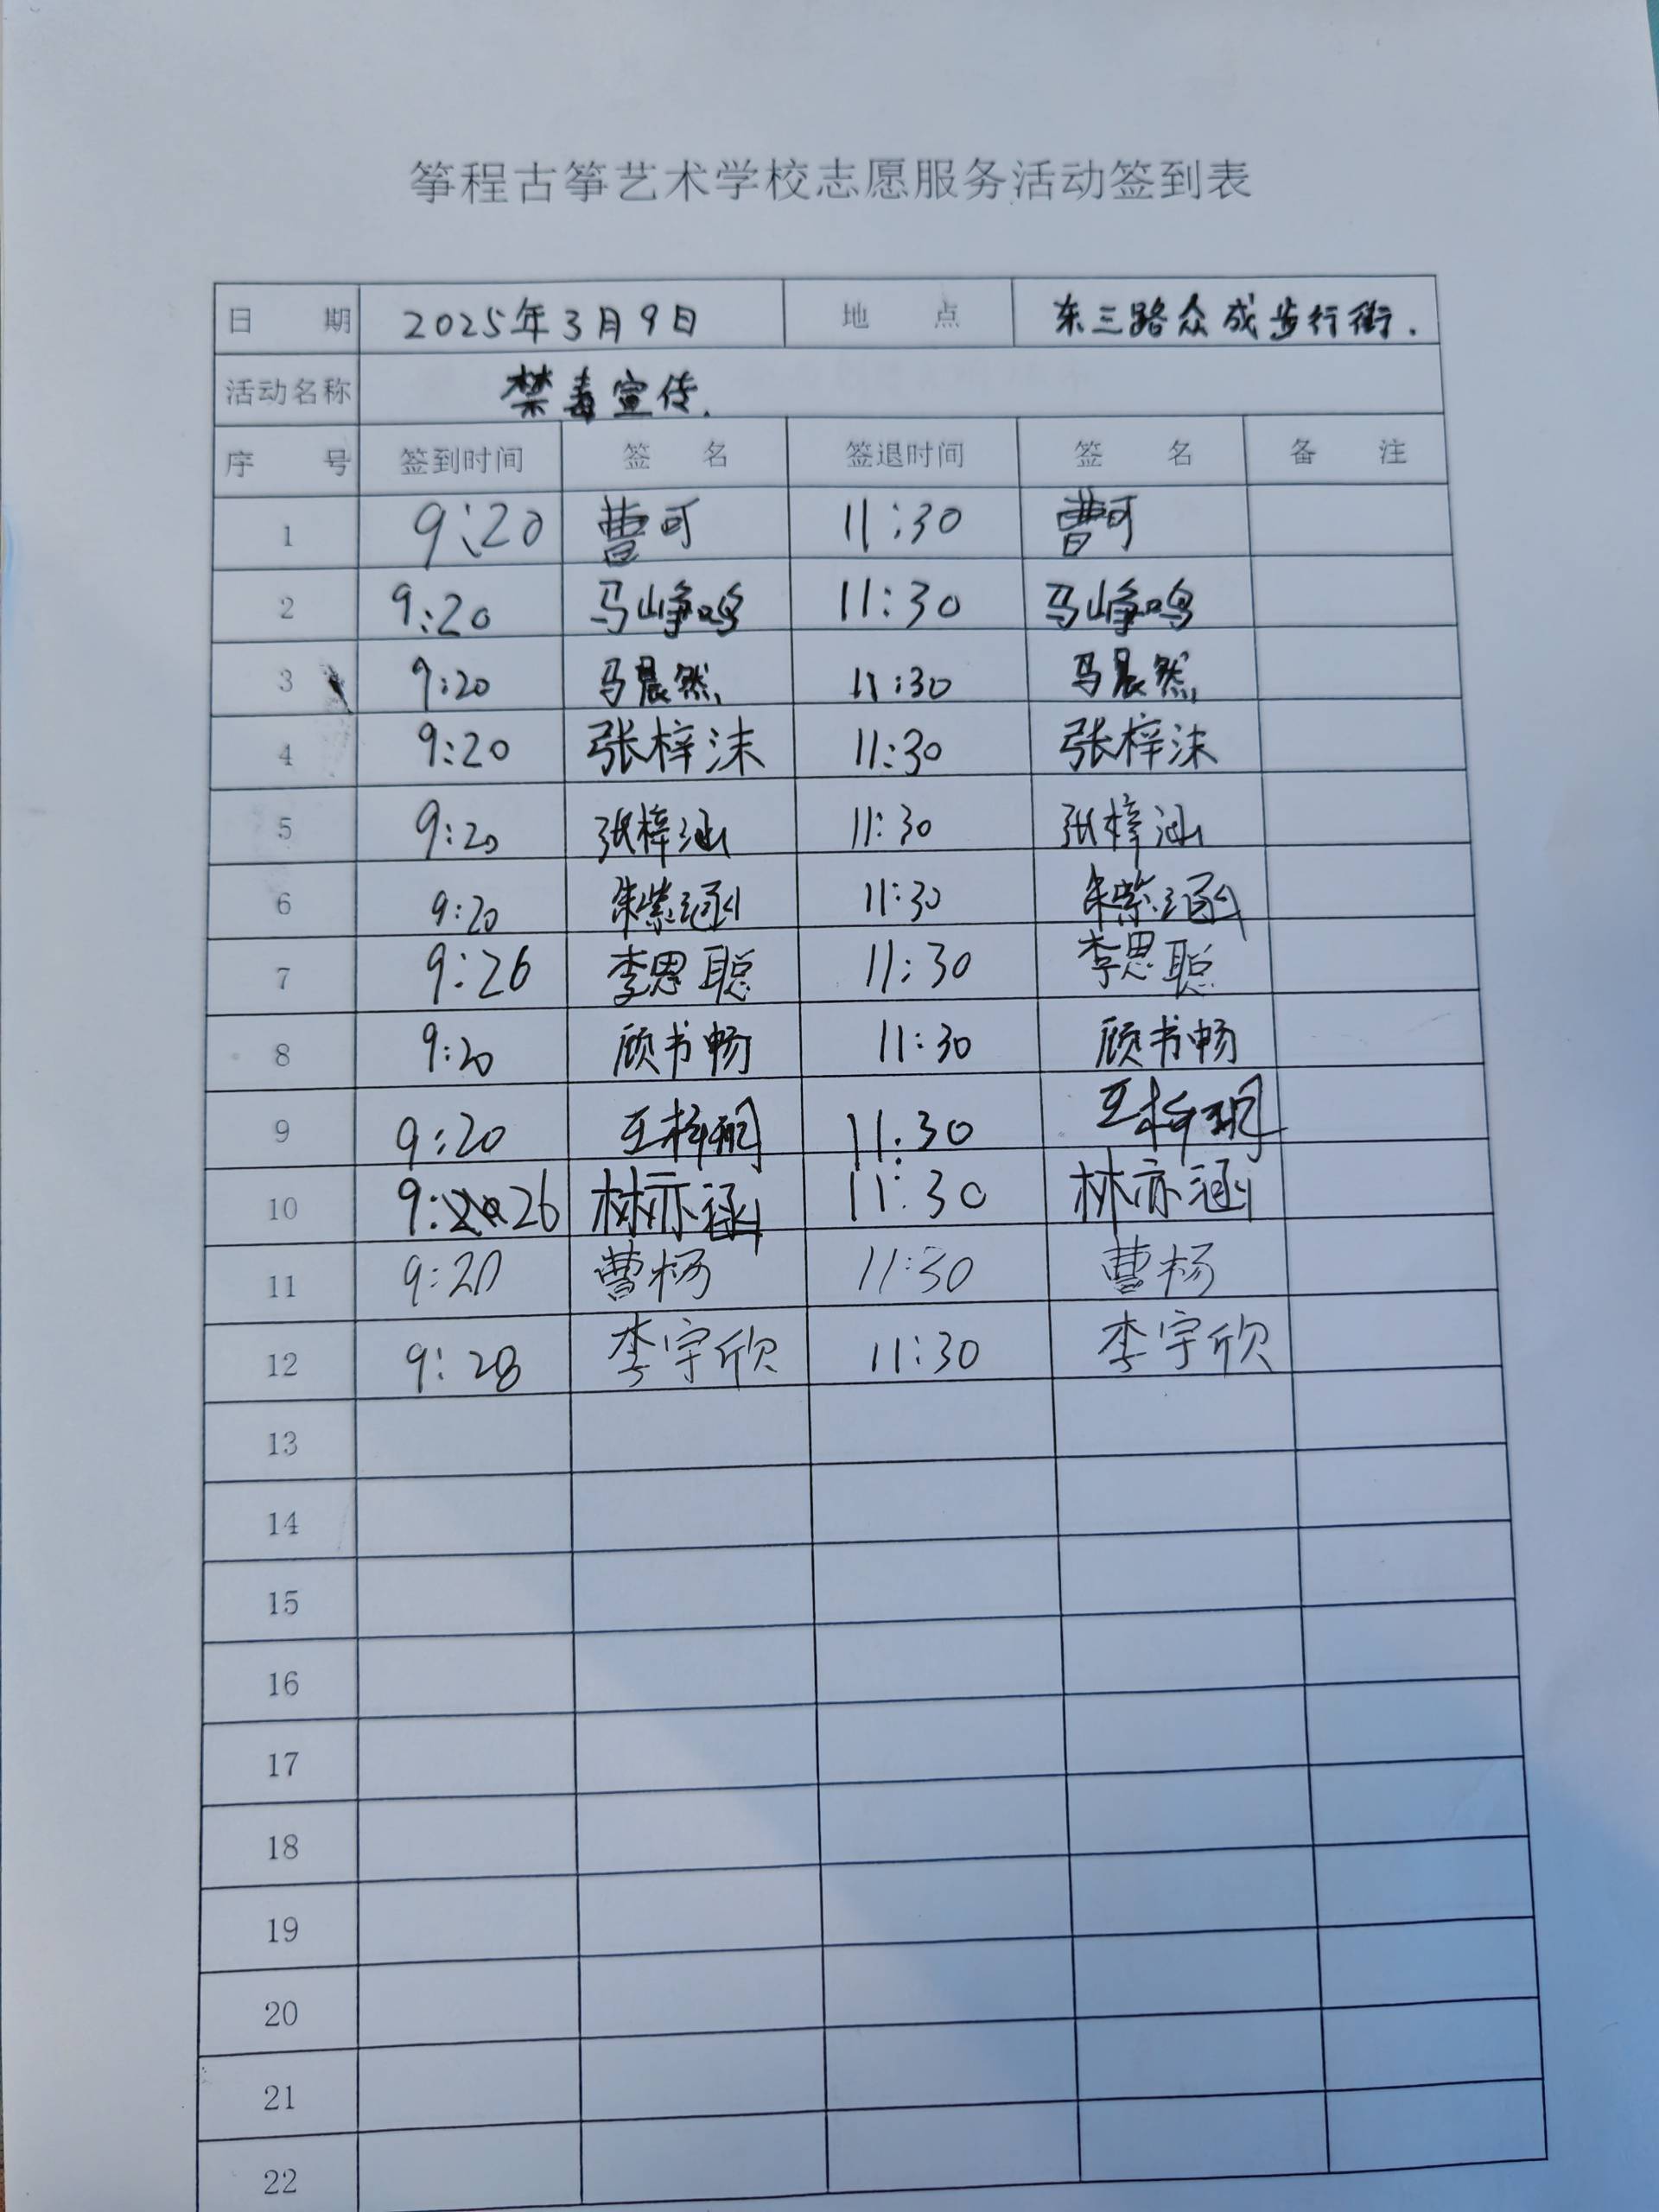 筝程古筝艺术学校志愿服务活动签到表
日 期 2025年3月9日 地 点 东三路众成步行街.
活动名称 禁毒宣传.
序 号 签到时间 签 名 签退时间 签 名 备 注
1 9:20 曹可 11:30 曹可
2 9:20 马峥鸣 11:30 马峥鸣
3 9:20 马晨然 11:30 马晨然
4 9:20 张梓沫 11:30 张梓沫
5 9:20 张梓涵 11:30 张梓涵
6 9:20 朱紫涵 11:30 朱紫涵
7 9:26 李思聪 11:30 李思聪
8 9:20 顾书畅 11:30 顾书畅
9 9:20 11:30
10 9:26 林亦涵 11:30 林亦涵
11 9:20 曹杨 11:30 曹杨
12 9:28 李宇欣 11:30 李宇欣
13
14
15
16
17
18
19
20
21
22